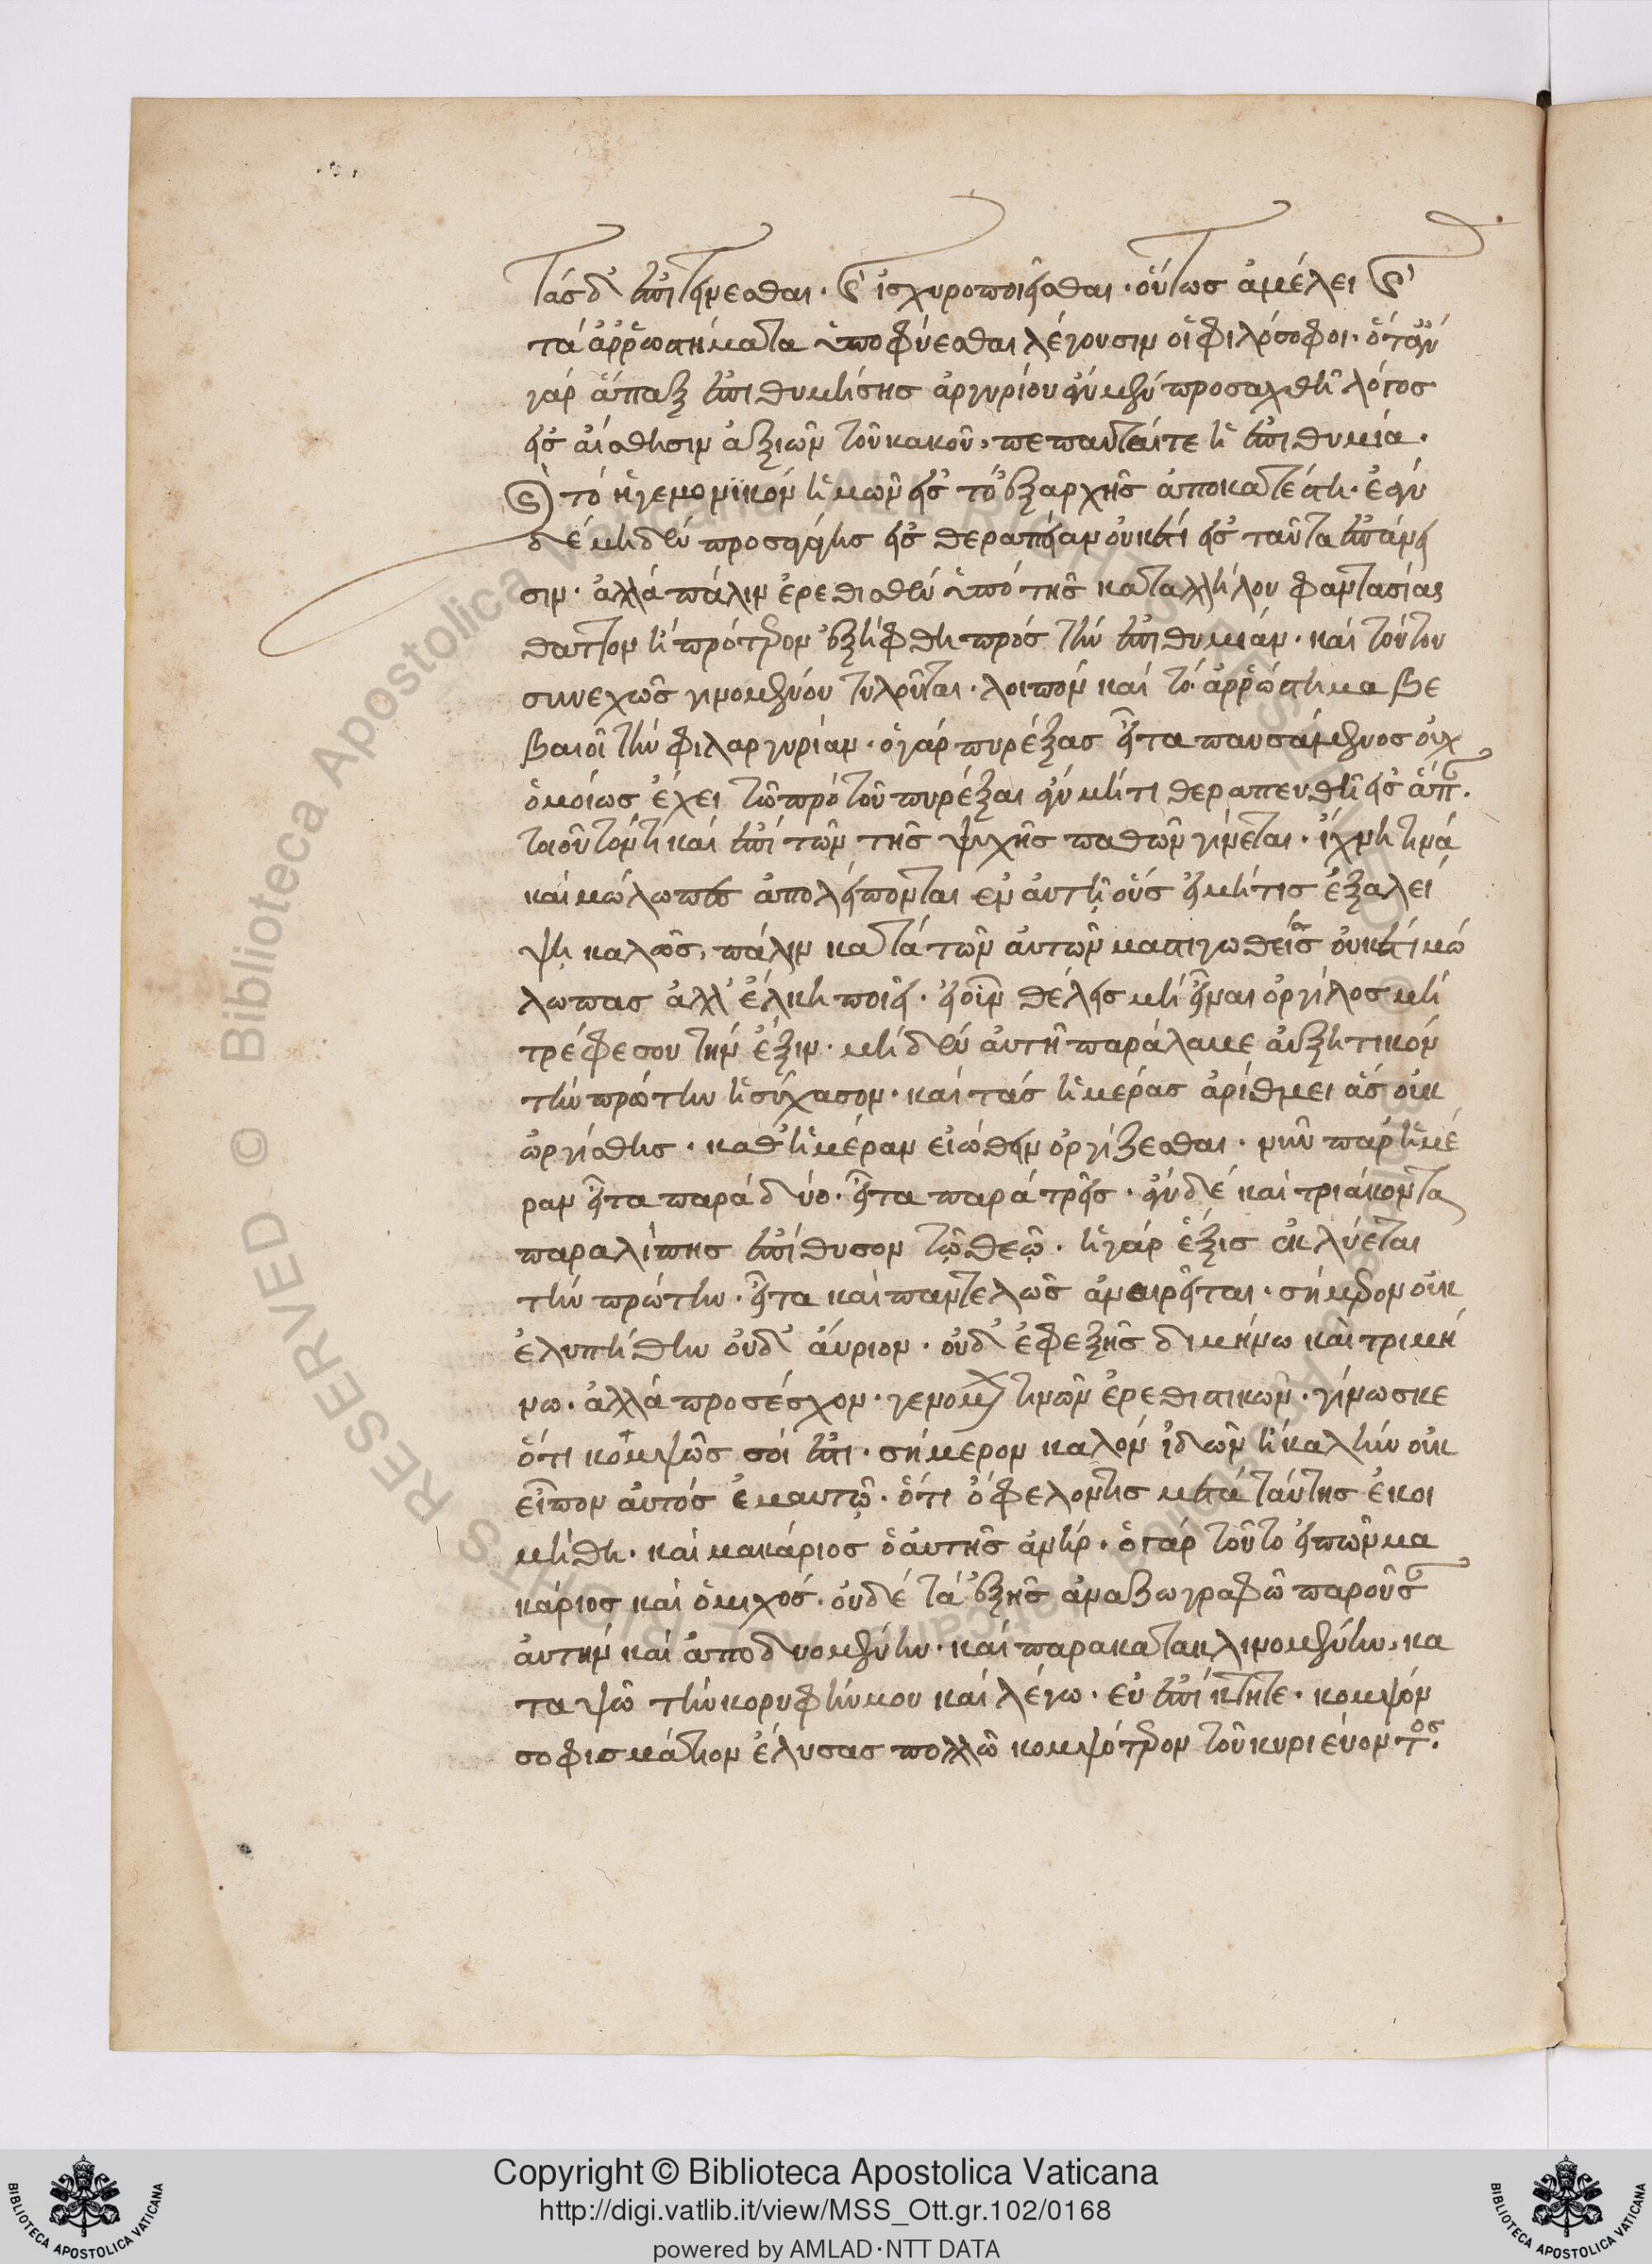 τὰς δ' ἐπιτείνεσθαι. καὶ ἰσχυροποιεῖσθαι. οὕτως ἀμέλει καὶ
τὰ ἀρρωστήματα ὑποφύεσθαι λέγουσιν οἱ φιλόσοφοι. ὅταν
γὰρ ἅπαξ ἐπιθυμήσης ἀργυρίου ἂν μὲν προσαχθῆ λόγος
εἰς αἴσθησιν ἀξιῶν τοῦ κακοῦ, πέπαυταί τε ἡ ἐπιθυμία.
καὶ τὸ ἡγεμονικὸν ἡμῶν εἰς τὸ ἐξαρχῆς ἀποκατέστη. ἐὰν
δὲ μηδὲν προσαγάγης εἰς θεραπείαν οὐκέτι εἰς ταῦτα ἐπάνει
σιν. ἀλλὰ πάλιν ἐρεθισθὲν ὑπὸ τῆς καταλλήλου φαντασίας
θᾶττον ἢ πρότερον ἐξήφθη πρὸς τὴν ἐπιθυμίαν. καὶ τούτου
συνεχῶς γινομένου τυλοῦται. λοιπὸν καὶ τὸ ἀρρώστημα βε
βαιοῖ τὴν φιλαργυρίαν. ὁ γὰρ πυρέξας εἶτα παυσάμενος οὐχ
ὁμοίως ἔχει τῶ πρὸ τοῦ πυρέξαι ἂν μή τι θεραπευθῆ εἰς ἅπαν.
τοιοῦτόν τι καὶ ἐπὶ τῶν τῆς ψυχῆς παθῶν γίνεται. ἴχνη τινὰ
καὶ μώλωπες ἀπολείπονται ἐν αὐτῆ οὓς εἰ μή τις ἐξαλεί
ψη καλῶς, πάλιν κατὰ τῶν αὐτῶν μαστιγωθεὶς οὐκέτι μώ
λωπας ἀλλ' ἕλκη ποιεῖ. εἰ οὖν θέλεις μὴ εἶναι ὀργίλος μὴ
τρέφε σου τὴν ἕξιν. μηδὲν αὐτῆ παράβαλλε αὐξητικόν
τὴν πρώτην ἡσύχασον. καὶ τὰς ἡμέρας ἀρίθμει ἃς οὐκ
ὠργίσθης. καθ' ἡμέραν εἰώθειν ὀργίζεσθαι. νῦν παρ' ἡμέ
ραν εἶτα παρὰ δύο. εἶτα παρὰ τρεῖς. ἂν δὲ καὶ τριάκοντα
παραλίπης ἐπίθυσον τῶ θεῶ. ἡ γὰρ ἕξις ἐκλύεται
τὴν πρώτην. εἶτα καὶ παντελῶς ἀναιρεῖται. σήμερον οὐκ
ἐλυπήθην οὐδ' αὔριον. οὐδ' ἐφεξῆς διμήνω καὶ τριμή
νω. ἀλλὰ προσέσχον. γενομένων τινῶν ἐρεθιστικῶν. γίνωσκε
ὅτι κομψῶς σοί ἐστι. σήμερον καλὸν ἰδὼν ἢ καλὴν οὐκ
εἶπον αὐτὸς ἐμαυτῶ. ὅτι ὄφελόν τις μετὰ ταύτης ἐκοι
μήθη. καὶ μακάριος ὁ αὐτῆς ἀνήρ. ὁ γὰρ τοῦτο εἰπὼν μα
κάριος καὶ ὁ μιχός. οὐδὲ τὰ ἑξῆς ἀναζωγραφῶ παροῦσαν
αὐτὴν καὶ ἀποδυομένην. καὶ παρακατακλινομένην, κα
ταψῶ τὴν κορυφήν μου καὶ λέγω. εὖ ἐπίκτητε. κομψὸν
σοφισμάτιον ἔλυσας πολλῶ κομψότερον τοῦ κυριεύοντος.
Copyright © Biblioteca Apostolica Vaticana
http://digi.vatlib.it/view/MSS_Ott.gr.102/0168
powered by AMLAD·NTT DATA